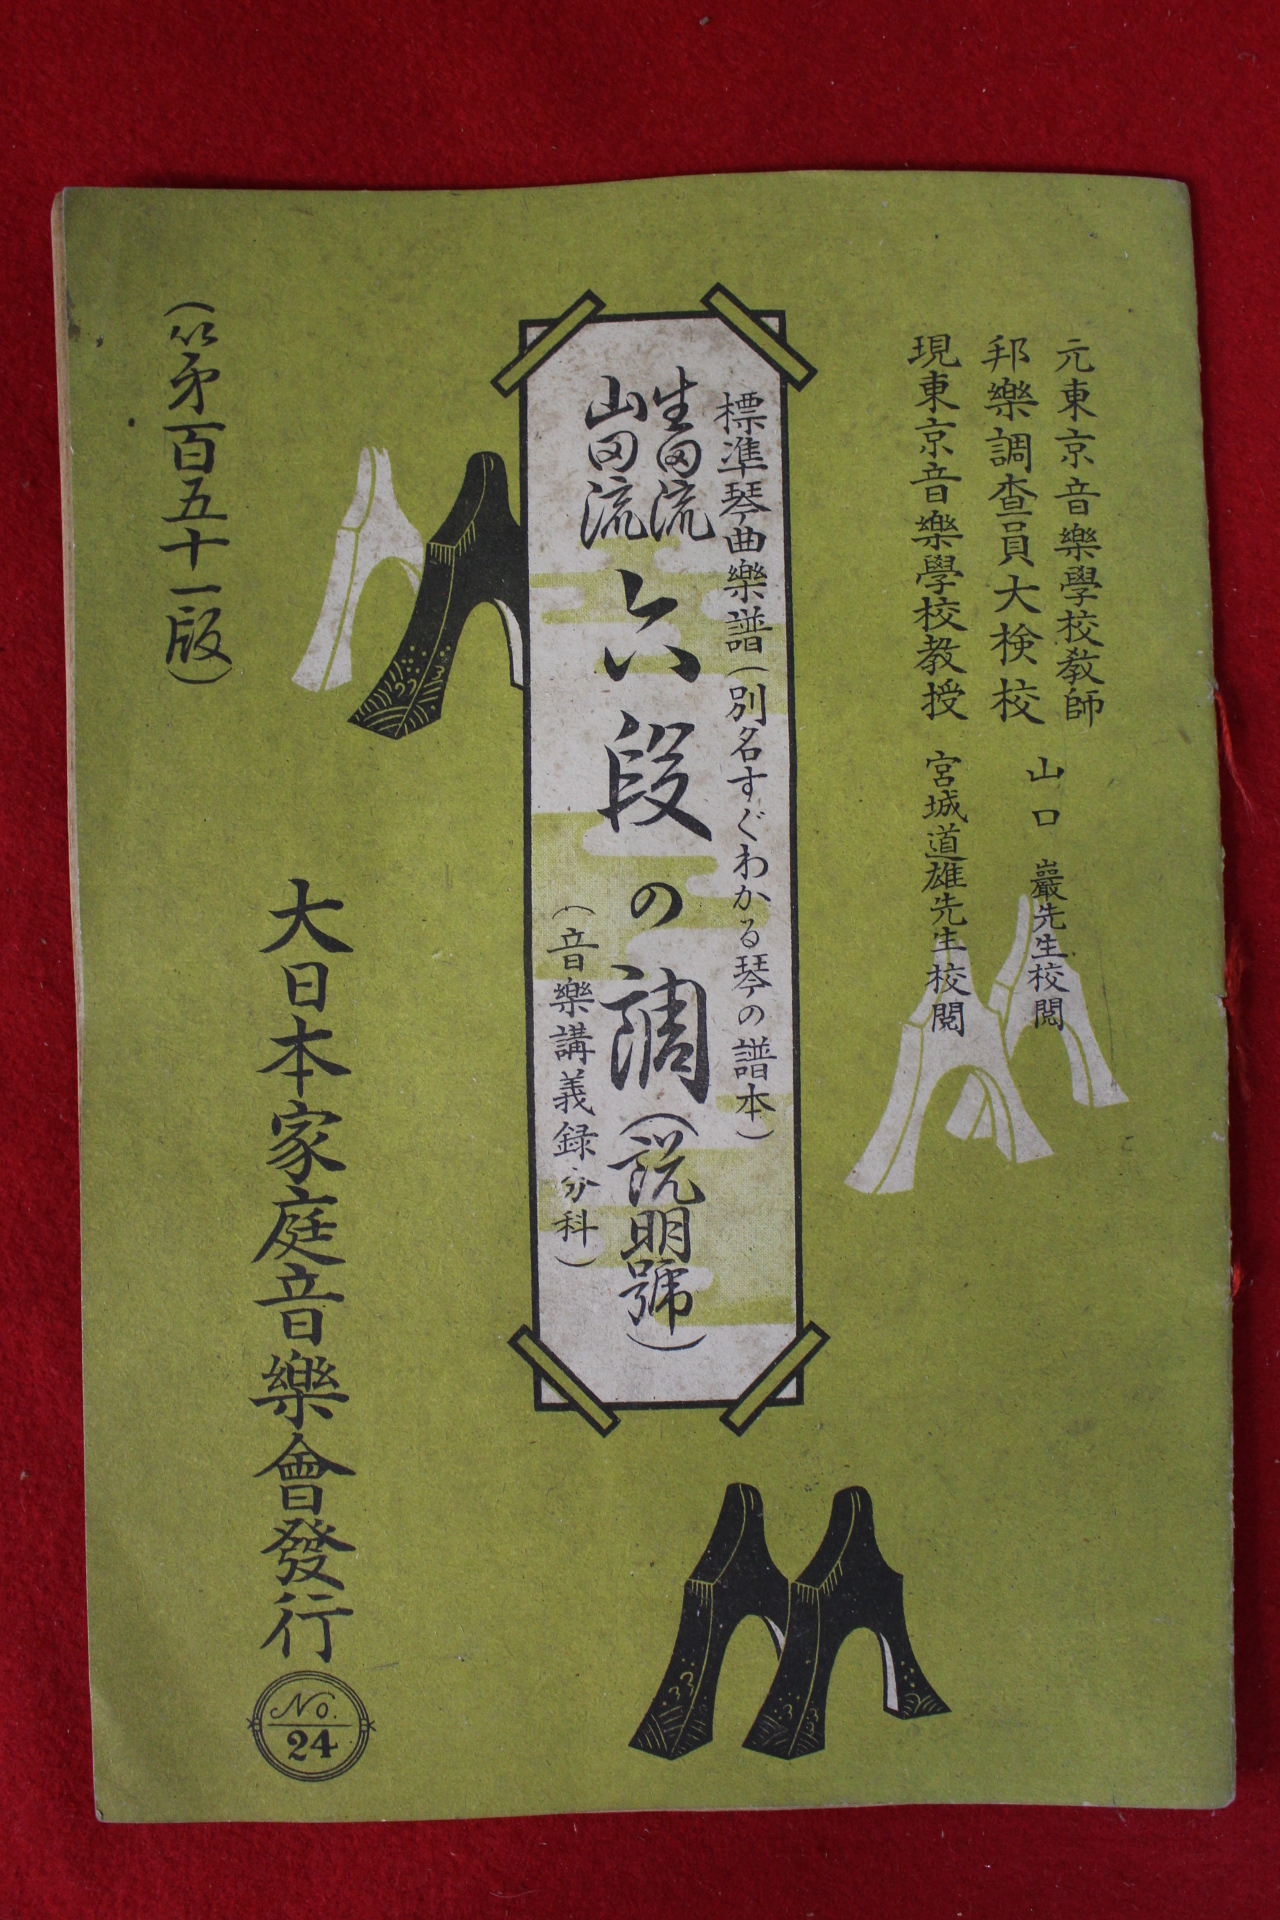 元東京音樂學校教師
邦樂調査員大検校
山口巖先生校閲
現東京音樂學校教授
宮城道雄先生校閲
標準琴曲樂譜(別名すぐわかる琴の譜本)
生田流
山田流
六段の調(説明號)
(音樂講義録分科)
大日本家庭音樂會發行
No.
24
第百五十一版)